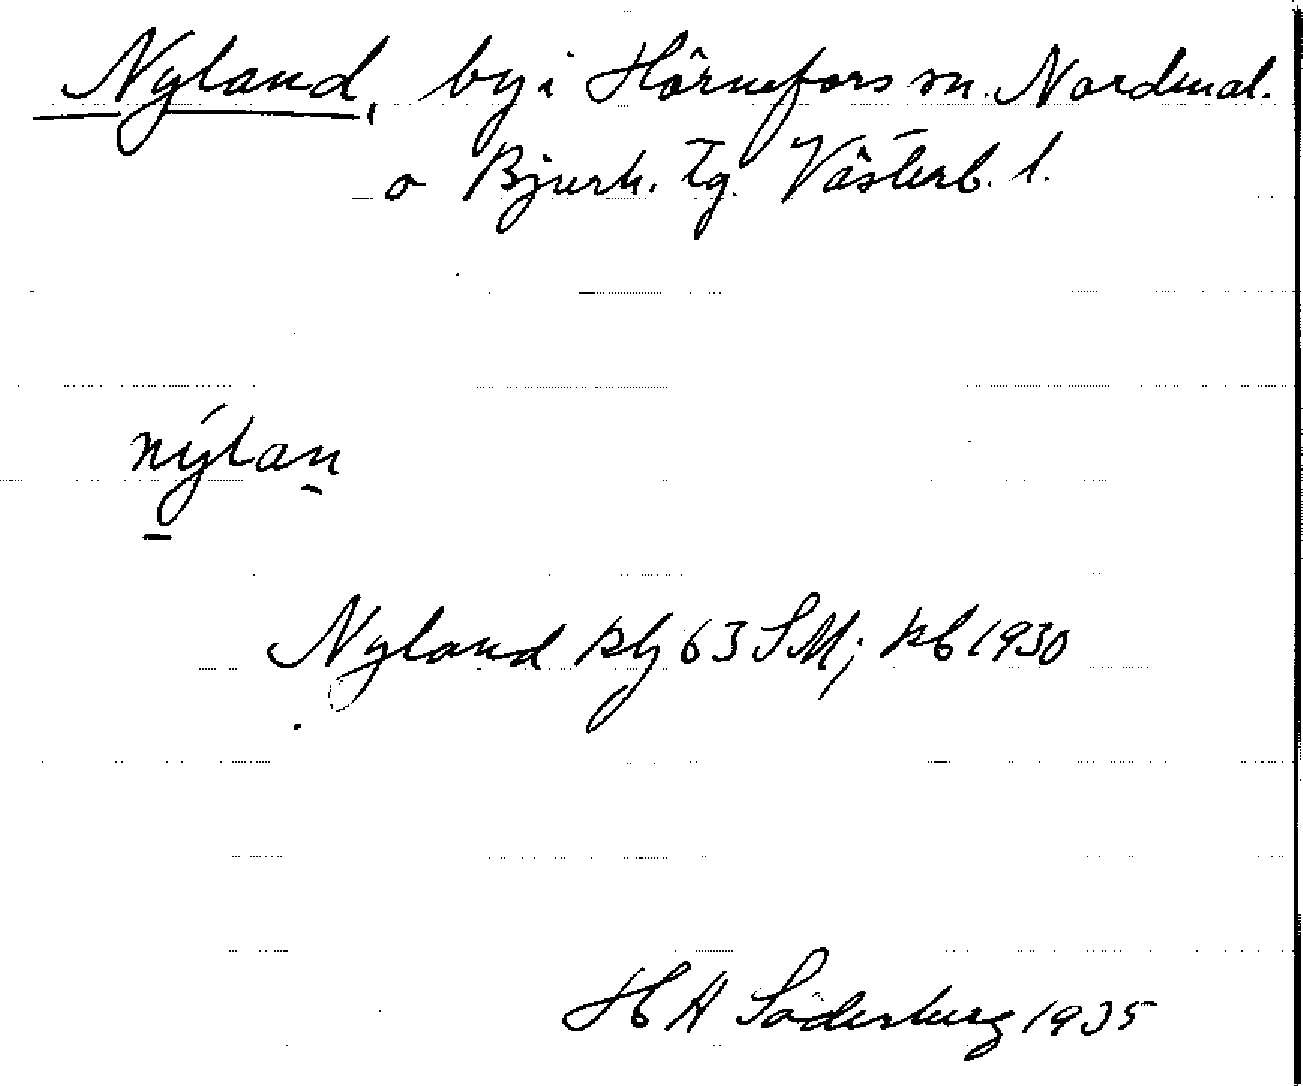 Nyland, by i Hörnefors sn. Nordmal.
o Bjurh. tg. Västerb. l.
nýlan
Nyland blj 63 SM; kb 1930
H A Söderberg 1935